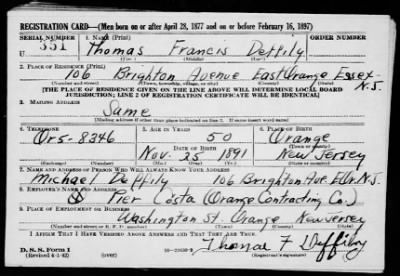 REGISTRATION CARD—(Men born on or after April 28, 1877 and on or before February 16, 1897)
SERIAL NUMBER 1. NAME (Print) ORDER NUMBER
U 351 Thomas Francis Deffily
(First) (Middle) (Last)
2. PLACE OF RESIDENCE (Print)
106 Brighton Avenue East Orange Essex N.J.
(Number and street) (Town, township, village, or city) (County) (State)
[THE PLACE OF RESIDENCE GIVEN ON THE LINE ABOVE WILL DETERMINE LOCAL BOARD
JURISDICTION; LINE 2 OF REGISTRATION CERTIFICATE WILL BE IDENTICAL]
3. MAILING ADDRESS
Same
(Mailing address if other than place indicated on line 2. If same insert word same)
4. TELEPHONE 5. AGE IN YEARS 6. PLACE OF BIRTH
Or5-8346 50 Orange
DATE OF BIRTH (Town or county)
Nov. 25 1891 New Jersey
(Exchange) (Number) (Mo.) (Day) (Yr.) (State or country)
7. NAME AND ADDRESS OF PERSON WHO WILL ALWAYS KNOW YOUR ADDRESS
Michael Deffily 106 Brighton Ave E.Or. N.J.
8. EMPLOYER'S NAME AND ADDRESS
Pier Costa (Orange Contracting Co.)
9. PLACE OF EMPLOYMENT OR BUSINESS
Washington St Orange New Jersey
(Number and street or R. F. D. number) (Town) (County) (State)
I AFFIRM THAT I HAVE VERIFIED ABOVE ANSWERS AND THAT THEY ARE TRUE.
D. S. S. Form 1
(Revised 4-1-42) (over) Thomas F Deffily
(Registrant's signature)